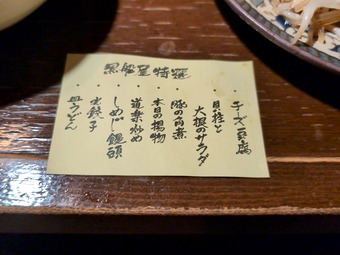 黒船屋特選
・チーズ豆腐
・貝柱と
大根のサラダ
・豚の角煮
・本日の揚物
・道楽炒め
・しめじ饅頭
・水餃子
・皿うどん